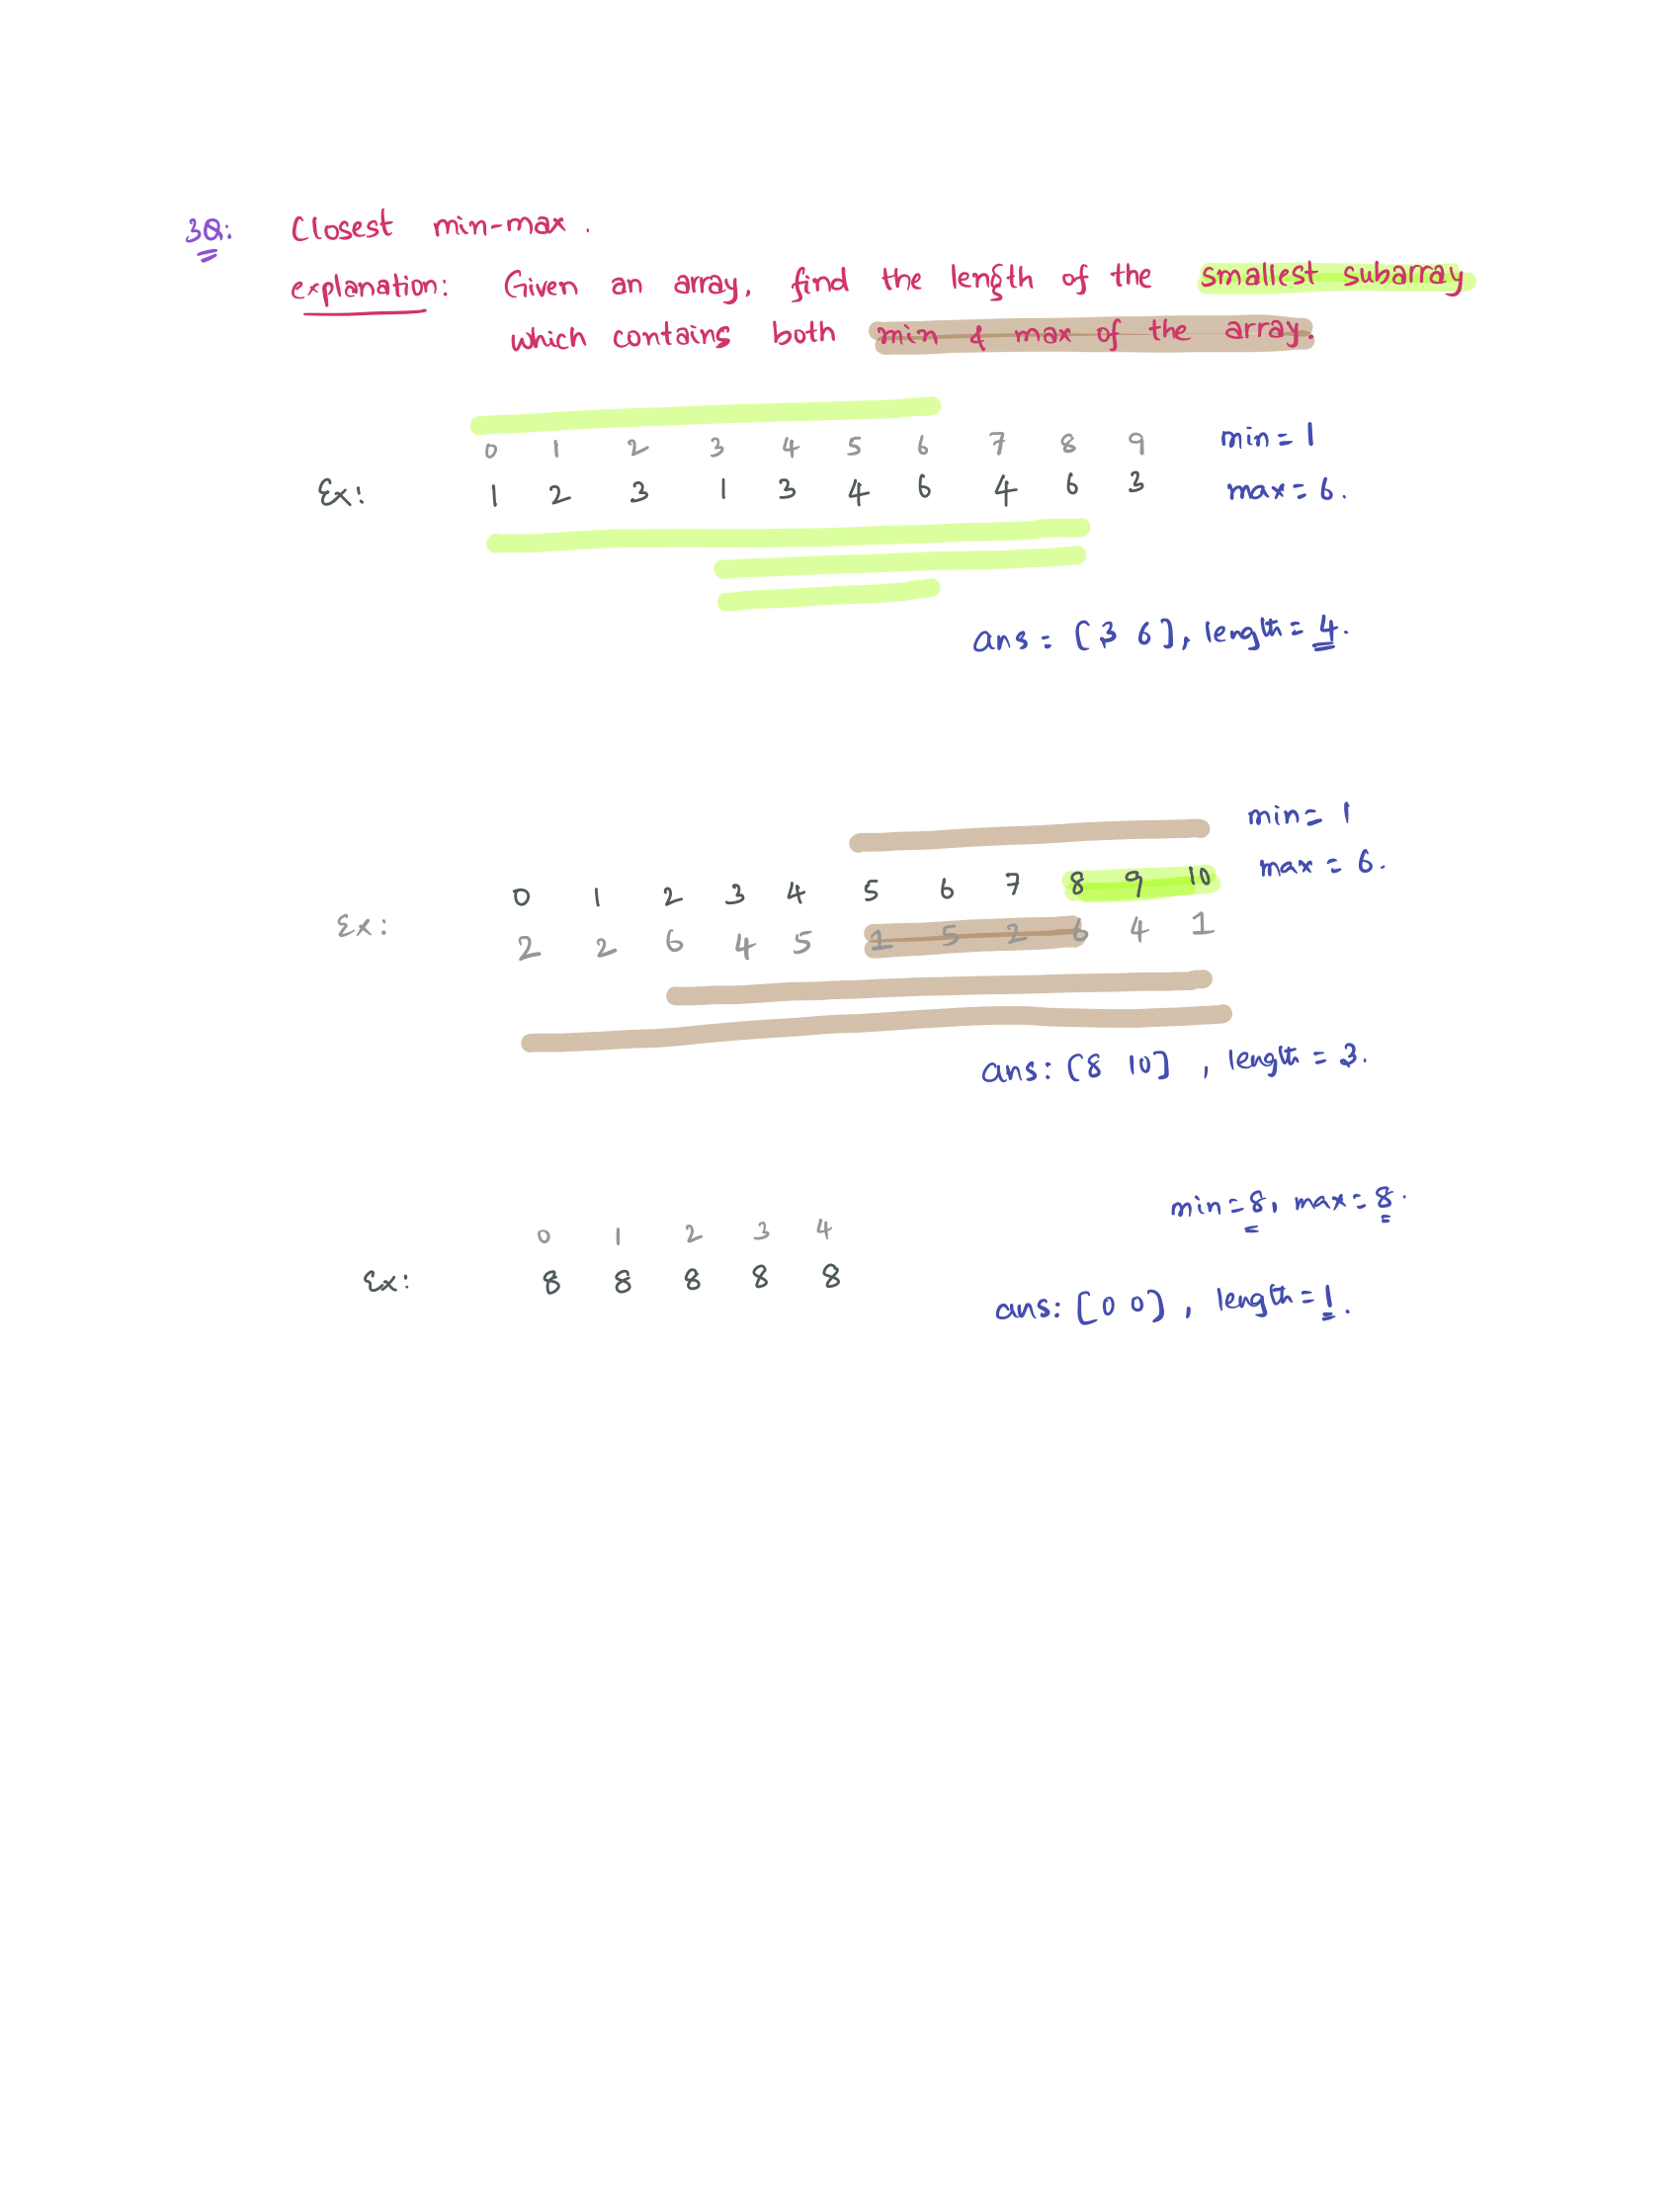 3Q: Closest min-max.
explanation: Given an array, find the length of the smallest subarray
which contains both min & max of the array.
0 1 2 3 4 5 6 7 8 9 min = 1
Ex: 1 2 3 1 3 4 6 4 6 3 max = 6.
ans = [3 6], length = 4.
min = 1
0 1 2 3 4 5 6 7 8 9 10 max = 6.
Ex: 2 2 6 4 5 1 5 2 6 4 1
ans: [8 10] , length = 3.
min = 8, max = 8.
0 1 2 3 4
Ex: 8 8 8 8 8
ans: [0 0] , length = 1.